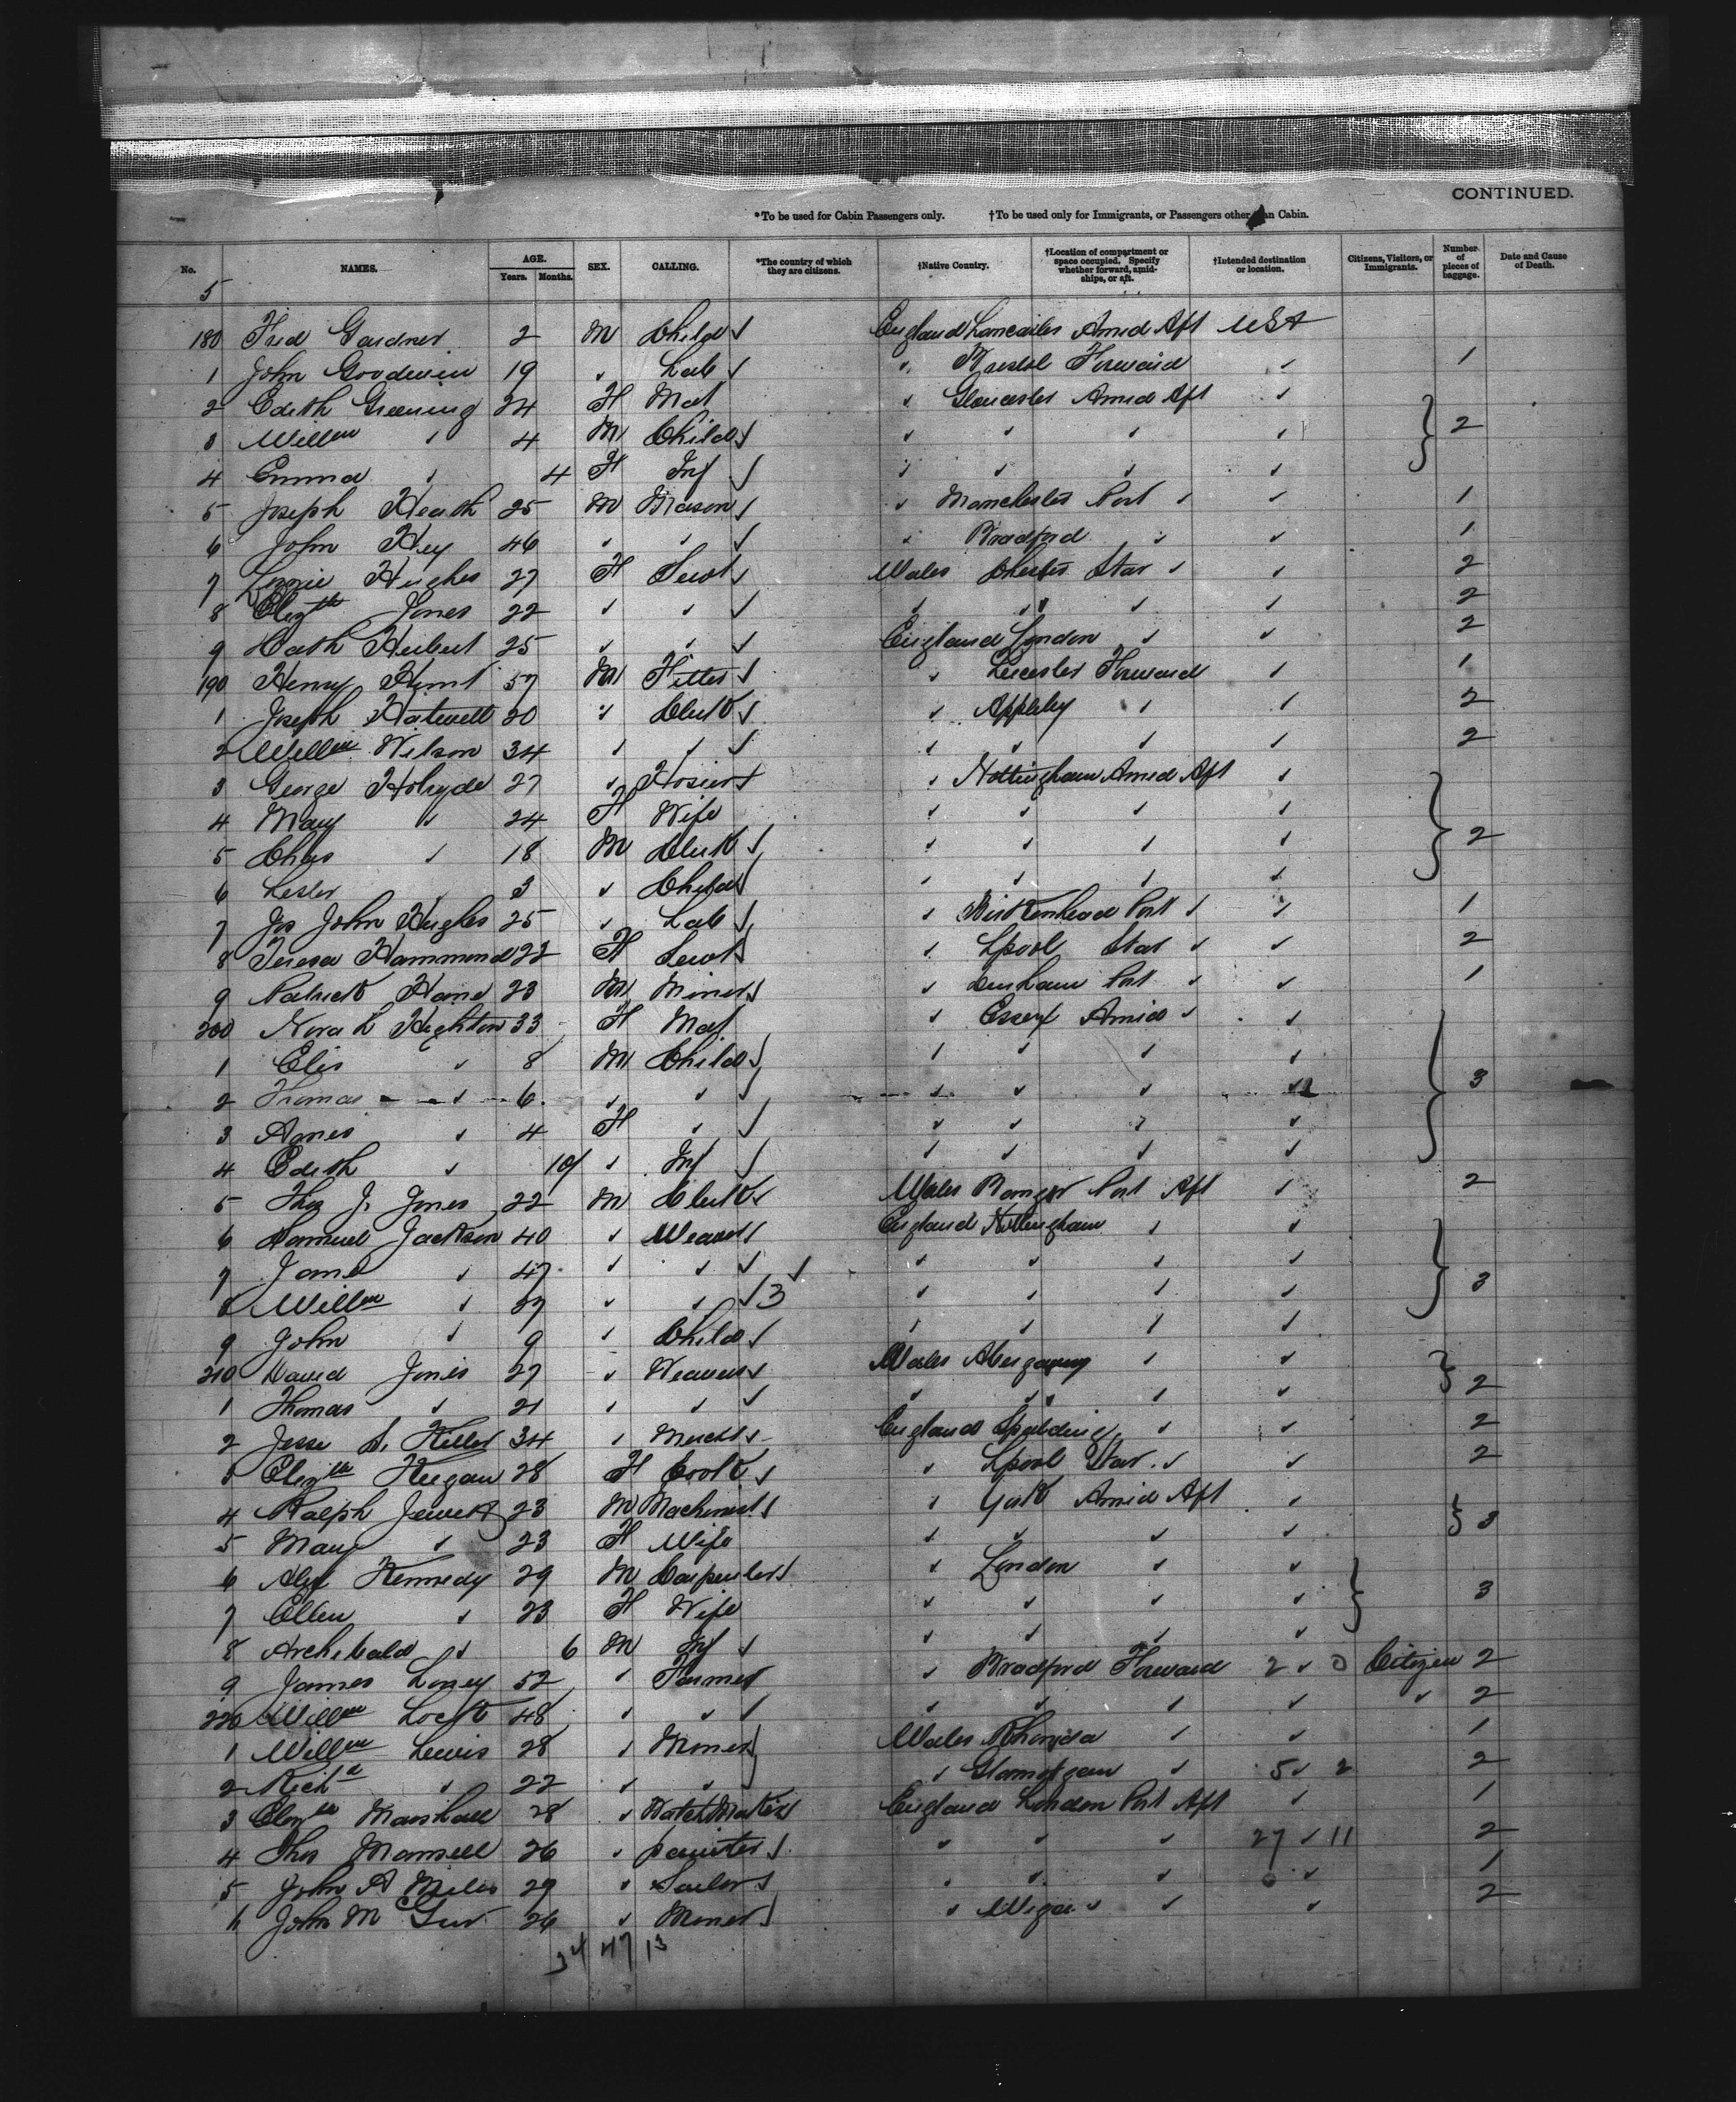 CONTINUED.
*To be used for Cabin Passengers only. †To be used only for Immigrants, or Passengers other than Cabin.
No. NAMES. AGE. Years. Months. SEX. CALLING. *The country of which they are citizens. †Native Country. †Location of compartment or space occupied. Specify whether forward, amidships, or aft. †Intended destination or location. Citizens, Visitors, or Immigrants. Number of pieces of baggage. Date and Cause of Death.
5
180 Fred Gardner 2 M Child ✓ England Lancaster Amid Aft USA
1 John Goodwin 19 ✓ Lab ✓ ✓ Bristol Forward ✓ 1
2 Edith Greening 24 F Mat ✓ Gloucester Amid Aft ✓
3 Willm ✓ 4 M Child ✓ ✓ ✓ ✓ ✓ 2
4 Emma ✓ 4 F Inf ✓ ✓ ✓ ✓ ✓
5 Joseph Heath 25 M Mason ✓ ✓ Manchester Port ✓ ✓ 1
6 John Hey 46 ✓ ✓ ✓ ✓ Bradford ✓ ✓ 1
7 Lizzie Hughes 27 F Servt ✓ Wales Chester Star ✓ ✓ 2
8 Elizth Jones 22 ✓ ✓ ✓ ✓ ✓ ✓ ✓ 2
9 Cath Herbert 25 ✓ ✓ ✓ England London ✓ ✓ 2
190 Henry Hunt 57 M Fitter ✓ ✓ Leicester Forward ✓ 1
1 Joseph Hatwell 20 ✓ Clerk ✓ ✓ Appleby ✓ ✓ 2
2 Willm Wilson 34 ✓ ✓ ✓ ✓ ✓ ✓ ✓ 2
3 George Holryde 27 ✓ Hosier ✓ ✓ Nottingham Amid Aft ✓
4 Mary ✓ 24 F Wife ✓ ✓ ✓ ✓
5 Chas ✓ 18 M Clerk ✓ ✓ ✓ ✓ ✓ 2
6 Lester ✓ 3 ✓ Child ✓ ✓ ✓ ✓ ✓
7 Jos John Hughes 25 ✓ Lab ✓ ✓ Birkenhead Port ✓ ✓ 1
8 Teresa Hammond 22 F Servt ✓ ✓ Lpool Star ✓ ✓ 2
9 Patrick Hand 23 M Miner ✓ ✓ Durham Port ✓ ✓ 1
200 Norah Heghton 33 F Mat ✓ Essex Amid ✓ ✓
1 Elis ✓ 8 M Child ✓ ✓ ✓ ✓ ✓
2 Thomas ✓ 6 ✓ ✓ ✓ ✓ ✓ ✓ ✓ 3
3 Agnes ✓ 4 F ✓ ✓ ✓ ✓ ✓ ✓
4 Edith ✓ 10 ✓ Inf ✓ ✓ ✓ ✓ ✓
5 Thos J. Jones 22 M Clerk ✓ Wales Bangor Port Aft ✓ 2
6 Samuel Jackson 40 ✓ Weaver ✓ England Nottingham ✓ ✓
7 Jane ✓ 47 ✓ ✓ ✓ ✓ ✓ ✓ ✓ ✓
8 Willm ✓ 37 ✓ ✓ ✓ 3 ✓ ✓ ✓ ✓ 3
9 John ✓ 9 ✓ Child ✓ ✓ ✓ ✓ ✓
210 David Jones 27 ✓ Weaver ✓ Wales Abergaveny ✓ ✓
1 Thomas ✓ 21 ✓ ✓ ✓ ✓ ✓ ✓ ✓ 2
2 Jesse S. Keller 34 ✓ Mercht ✓ England Spalding ✓ ✓ 2
3 Elizth Keegan 28 F Cook ✓ ✓ Lpool Star ✓ ✓ 2
4 Ralph Jewett 23 M Machinist ✓ ✓ York Amid Aft ✓
5 Mary ✓ 23 F Wife ✓ ✓ ✓ ✓ 3
6 Alex Kennedy 29 M Carpenter ✓ ✓ London ✓ ✓
7 Ellen ✓ 23 F Wife ✓ ✓ ✓ ✓ 3
8 Archibald ✓ 6 M Inf ✓ ✓ ✓ ✓ ✓
9 James Loney 52 ✓ Farmer ✓ Bradford Forward 2 ✓ 0 Citizen 2
220 Willm 48 ✓ ✓ ✓ ✓ ✓ ✓ ✓ ✓ 2
1 Willm Lewis 28 ✓ Miner ✓ Wales Rhonda ✓ ✓ 1
2 Richd ✓ 22 ✓ ✓ ✓ Glamorgan ✓ 5 ✓ 2 2
3 Elizth Marshall 28 ✓ Watch Maker ✓ England London Port Aft ✓ 1
4 Thos Mansell 26 ✓ painter ✓ ✓ ✓ ✓ 27 ✓ 11 2
5 John A Miles 29 ✓ Sailor ✓ ✓ ✓ ✓ 0 ✓ 1
6 John McGur 26 ✓ Miner ✓ ✓ Wigan ✓ ✓ ✓ 2
34 47 13